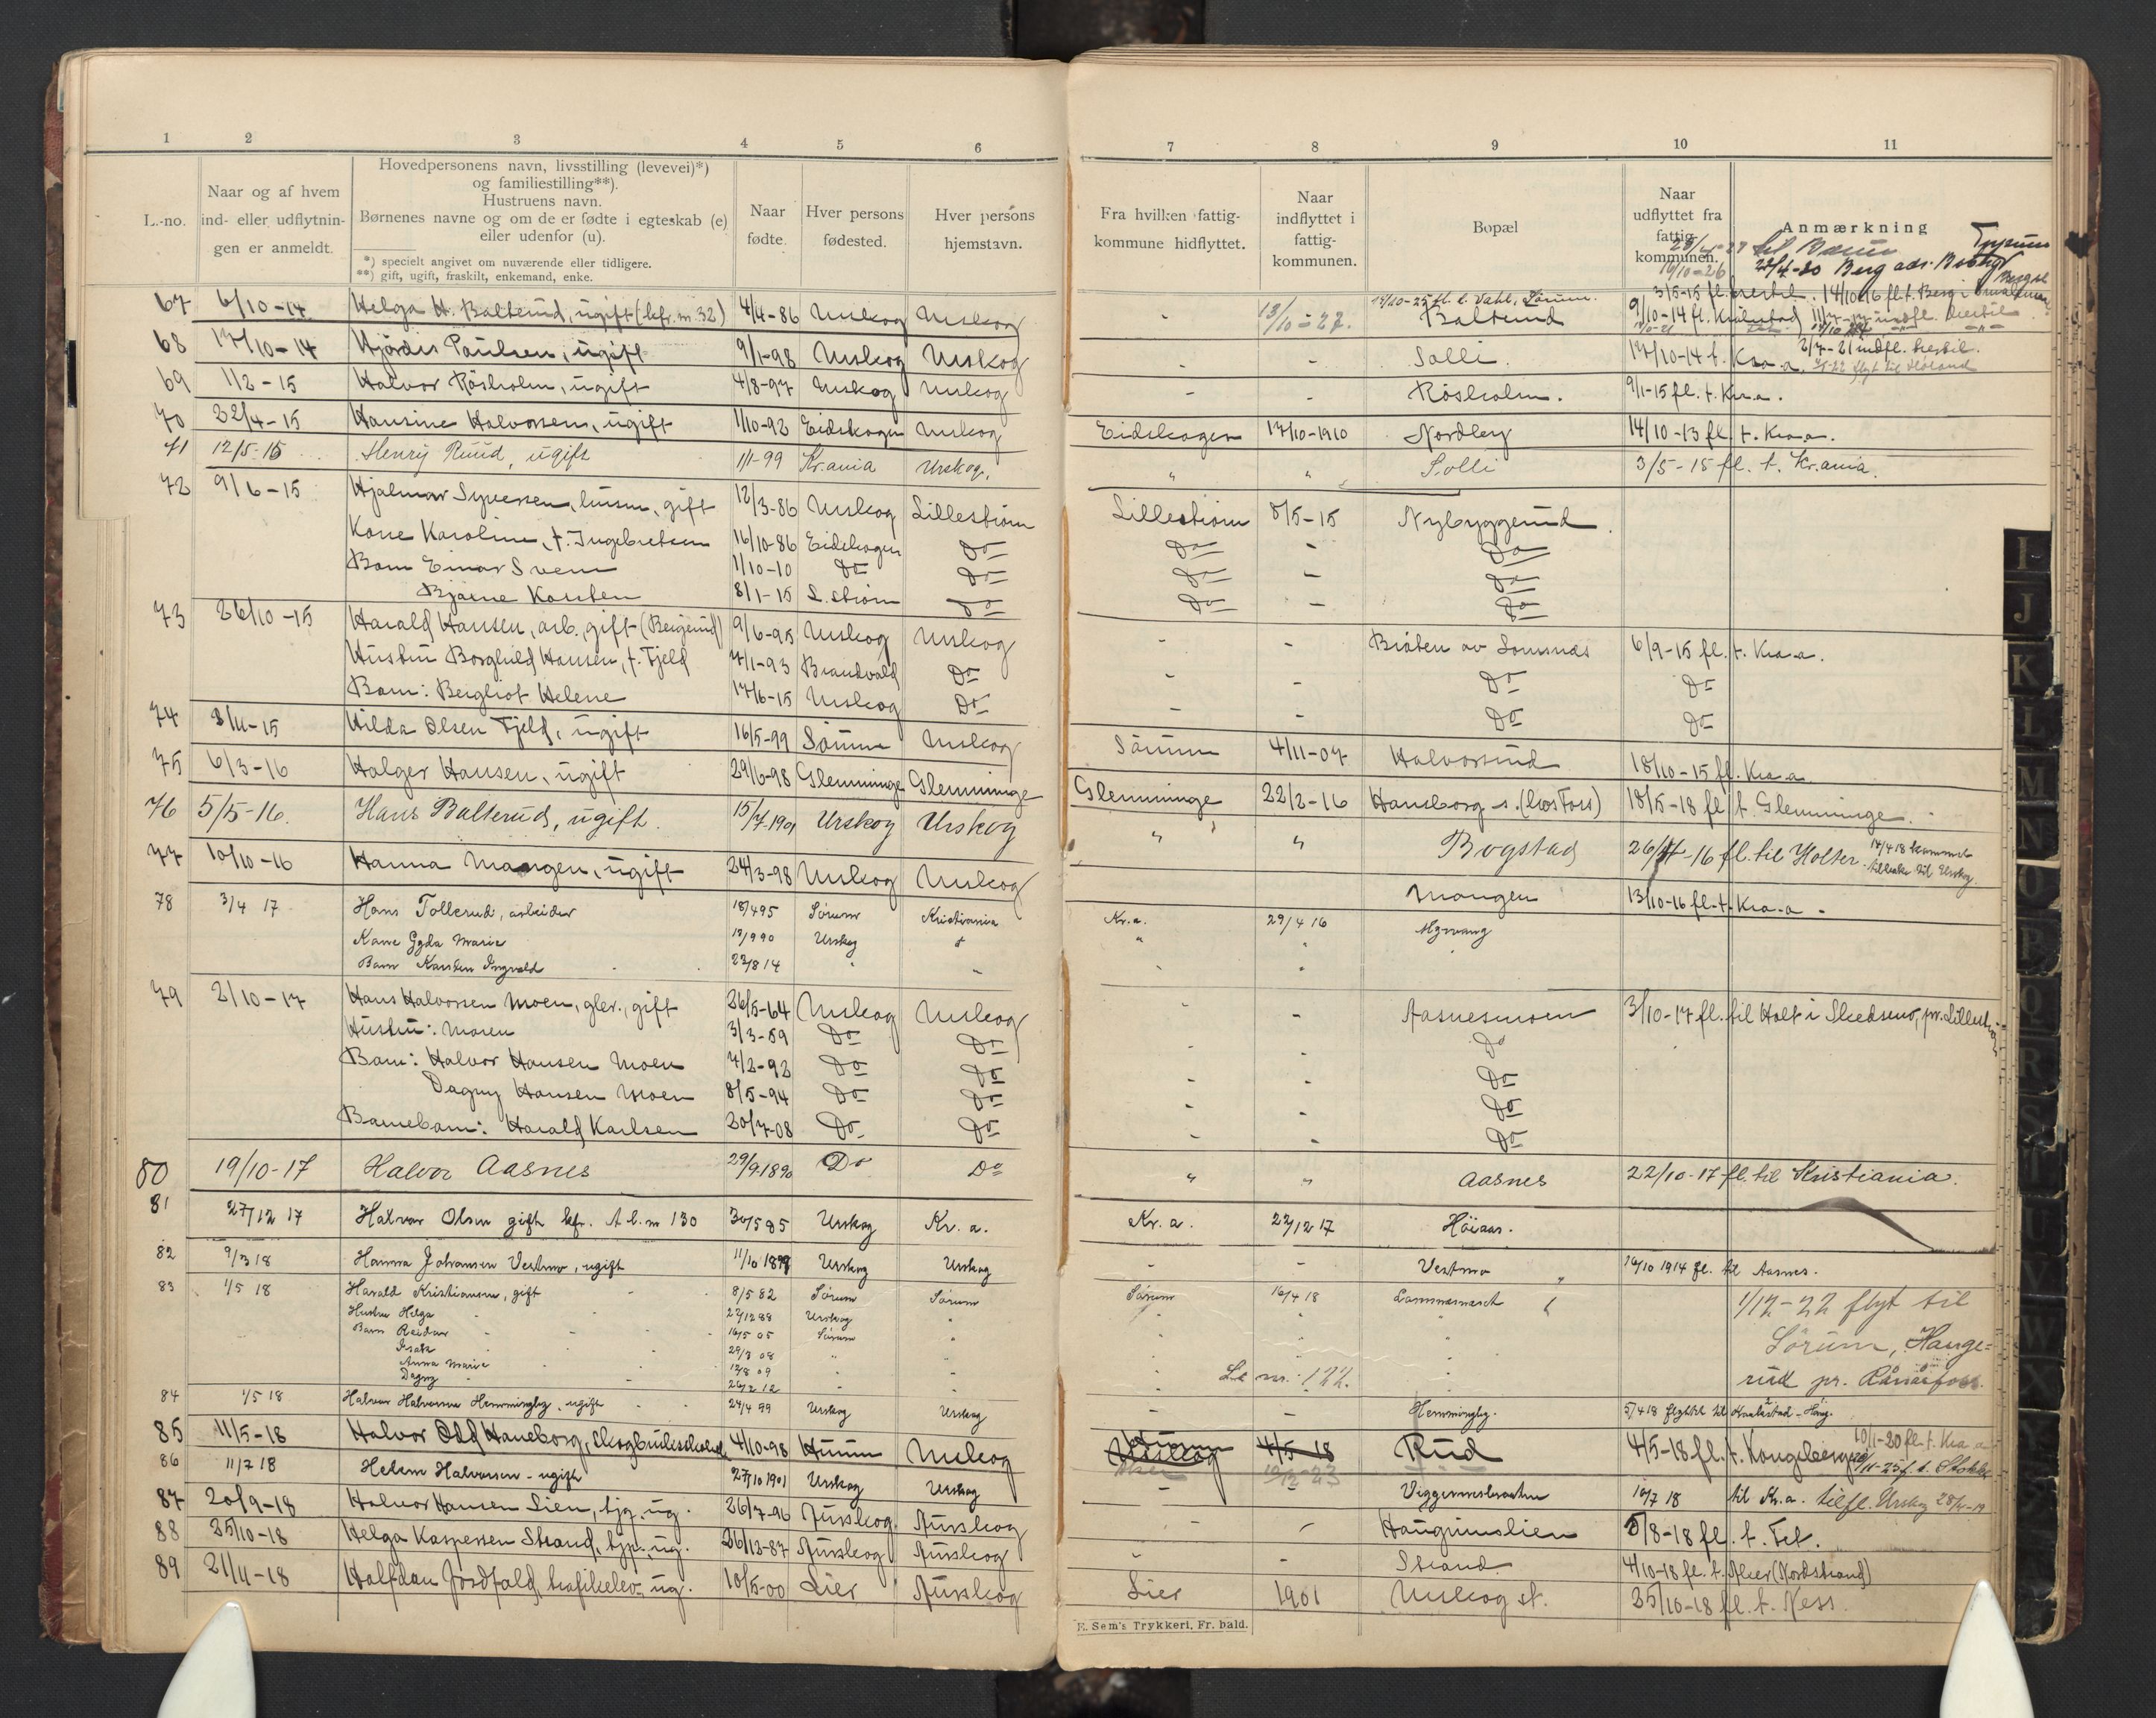 1 2 3 4 5 6 7 8 9 10 11
L.-no.
Naar og af hvem
ind- eller udflytnin-
gen er anmeldt.
Hovedpersonens navn, livsstilling (levevei)*)
og familiestilling**).
Hustruens navn.
Børnenes navne og om de er fødte i egteskab (e)
eller udenfor (u).
*) specielt angivet om nuværende eller tidligere.
**) gift, ugift, fraskilt, enkemand, enke.
Naar
fødte.
Hver persons
fødested.
Hver persons
hjemstavn.
Fra hvilken fattig-
kommune hidflyttet.
Naar
indflyttet i
fattig-
kommunen.
Bopæl
Naar
udflyttet fra
fattig-
kommunen.
Anmærkning
67 6/10-14 Helga H. Balterud, ugift (kfr. nr. 32) 4/4-86 Urskog Urskog - 13/10-27. Balterud
68 17/10-14 Hjördis Paulsen, ugift 9/1-98 Urskog Urskog - - Solli. 17/10-14 t. Kra-a. 2/7-21 indfl. hertil.
69 1/2-15 Halvor Rösholm, ugift 4/8-97 Urskog Urskog - - Rösholm. 9/1-15 fl. t. Kr.a.
70 22/4-15 Hansine Halvorsen, ugift 1/10-92 Eidskogen Urskog Eidskogen 17/10-1910 Nordley 14/10-13 fl. t. Kra-a.
71 12/5-15 Henry Ruud, ugift 1/1-99 Kr.ania Urskog. " " Solli 3/5-15 fl. t. Kr.ania.
72 9/6-15 Hjalmar Syversen, gift 12/3-86 Urskog Lilleström Lilleström 8/5-15 Nybyggerud
Kone Karoline, f. Ingebretsen 16/10-86 Eidskogen Do Do - Do
Barn Einar Svem 1/10-10 Do Do Do - Do
Bjarne Karsten 8/1-15 L.ström Do Do - Do
73 26/10-15 Harald Hansen, arb., gift (Bergerud) 9/6-95 Urskog Urskog - - Bråten av Lomsnæs 6/9-15 fl. t. Kra-a.
Hustru Borghild Hansen, f. Fjeld 7/1-93 Brandvold Do - - Do Do
Barn: Bergliot Helene 17/6-15 Urskog Do - - Do Do
74 8/11-15 Hilda Olsen Fjeld, ugift 16/5-99 Sörum Urskog Sörum 4/11-07 Halvorsrud 18/10-15 fl. Kra-a.
75 6/3-16 Holger Hansen, ugift 29/6-98 Glemminge Glemminge Glemminge 22/2-16 Haneborg s. (hos Foss) 18/5-18 fl. t. Glemminge.
76 5/5-16. Hans Balterud, ugift. 15/7-1901 Urskog Urskog " " Bogstad 26/4-16 fl. til Holter. 14/4 18 kommet tilbake til Urskog.
77 10/10-16 Hanna Mangen, ugift 24/3-98 Urskog Urskog Mangen 13/10-16 fl. t. Kra-a -
78 3/4 17 Hans Tollerud, arbeider 18/4 95 Sörum Kristiania Kr.a. 29/4 16
Kone Gyda Marie 19/9 90 Urskog " " "
Barn Karsten Ingvald 22/8 14 " " " "
79 2/10-17 Hans Halvorsen Moen, gler., gift 26/5-64 Urskog Urskog " - Aasnesmoen 3/10-17 fl. til Holt i Skedsmo, pr. Lilleström
Hustru: Maren 3/3-59 Do Do - - Do
Barn: Halvor Hansen Moen 7/2-92 Do Do - - Do
Dagny Hansen Moen 8/5-94 Do Do - - Do
Barnebarn: Harald Karlsen 20/7-08 Do Do - - Do
80 19/10-17 Halvor Aasnes 29/9-1890 Do Do " " Aasnes 22/10-17 fl. til Kristiania.
81 27/12 17 Halvor Olsen gift kfr. A l. nr 130 30/5 85 Urskog Kr. a. Kr. a. 22/12 17 Höiaas.
82 9/3 18 Hanna Johansen Vestmo, ugift 11/10 1899 Urskog Urskog - - Vestmo 16/10 1914 fl. til Aasnes.
83 1/5 18 Harald Kristiansen, gift 8/5 82 Sörum Sörum Sörum 16/4 18 1/12-22 flyt til
Hustru Helga 27/12 88 Urskog " Sörum, Hauge=
Barn Reidar 16/5 05 Sörum " rud pr. Rånåsfoss.
Isak 29/3 08
Anna Marie 12/8 09
Dagny 26/2 12 Le nr. 122.
84 1/5 18 Halvor Halvorsen Hemmingby, ugift 24/4 99 Urskog Urskog - - Hemmingby.
85 11/5-18 Halvor Odd Haneborg, 4/10-98 Hurum Urskog Urskog 4/5-18 Rud 4/5-18 fl. t. Kongsberg 10/1-20 fl. t. Kra-a
86 11/7 18 Helene Halvorsen - ugift 27/10 1901 Urskog Urskog - - Viggernesbraaten 10/7 18 til Kr.a. tilfl. Urskog
87 20/9-18 Halvor Hansen Lien, tjg. ug. 26/7-96 Aurskog Aurskog - - Haugrimslien 5/8-18 fl. t. Fet.
88 25/10-18 Helga Kaspersen Strand, tjp., ug. 26/12-87 Aurskog Aurskog - - Strand 4/10-18 fl. t. Aker (Nordstrand)
89 21/11-18 Halfdan Jordfald, trafikelev, ug. 10/5-00 Lier Aurskog Lier 1901 Urskog st. 25/10-18 fl. t. Nes.
E. Sem's Trykkeri, Fr. hald.
I
J
K
L
M
N
O
P
Q
R
S
T
U
V
W
X